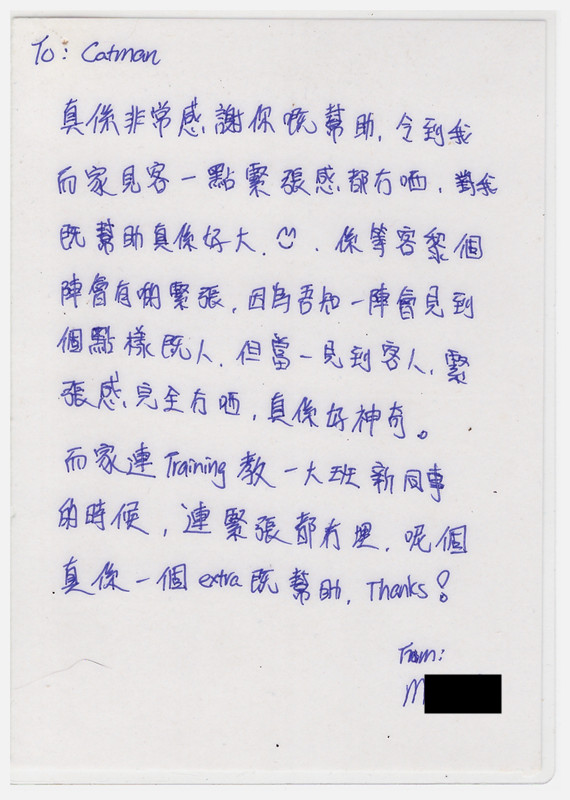 To: Catman
真係非常感謝你嘅幫助, 令到我
而家見客一點緊張感都冇晒, 對我
既幫助真係好大. ☺. 係等客黎個
陣會有啲緊張, 因為吾知一陣會見到
個點樣既人, 但當一見到客人, 緊
張感完全冇晒, 真係好神奇。
而家連 Training 教一大班新同事
的時候, 連緊張都冇埋, 呢個
真係一個 extra 既幫助, Thanks!
From:
M